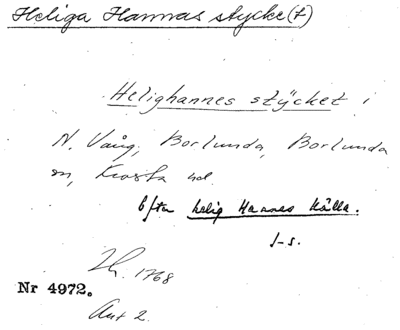 Heliga Hannas stycke(t)
Helighannes stycket i
N. Vång, Borlunda, Borlunda
sn, Frosta hd.
Efter helig Hannes Källa.
J-s.
1768
Nr 4972.
Akt 2.